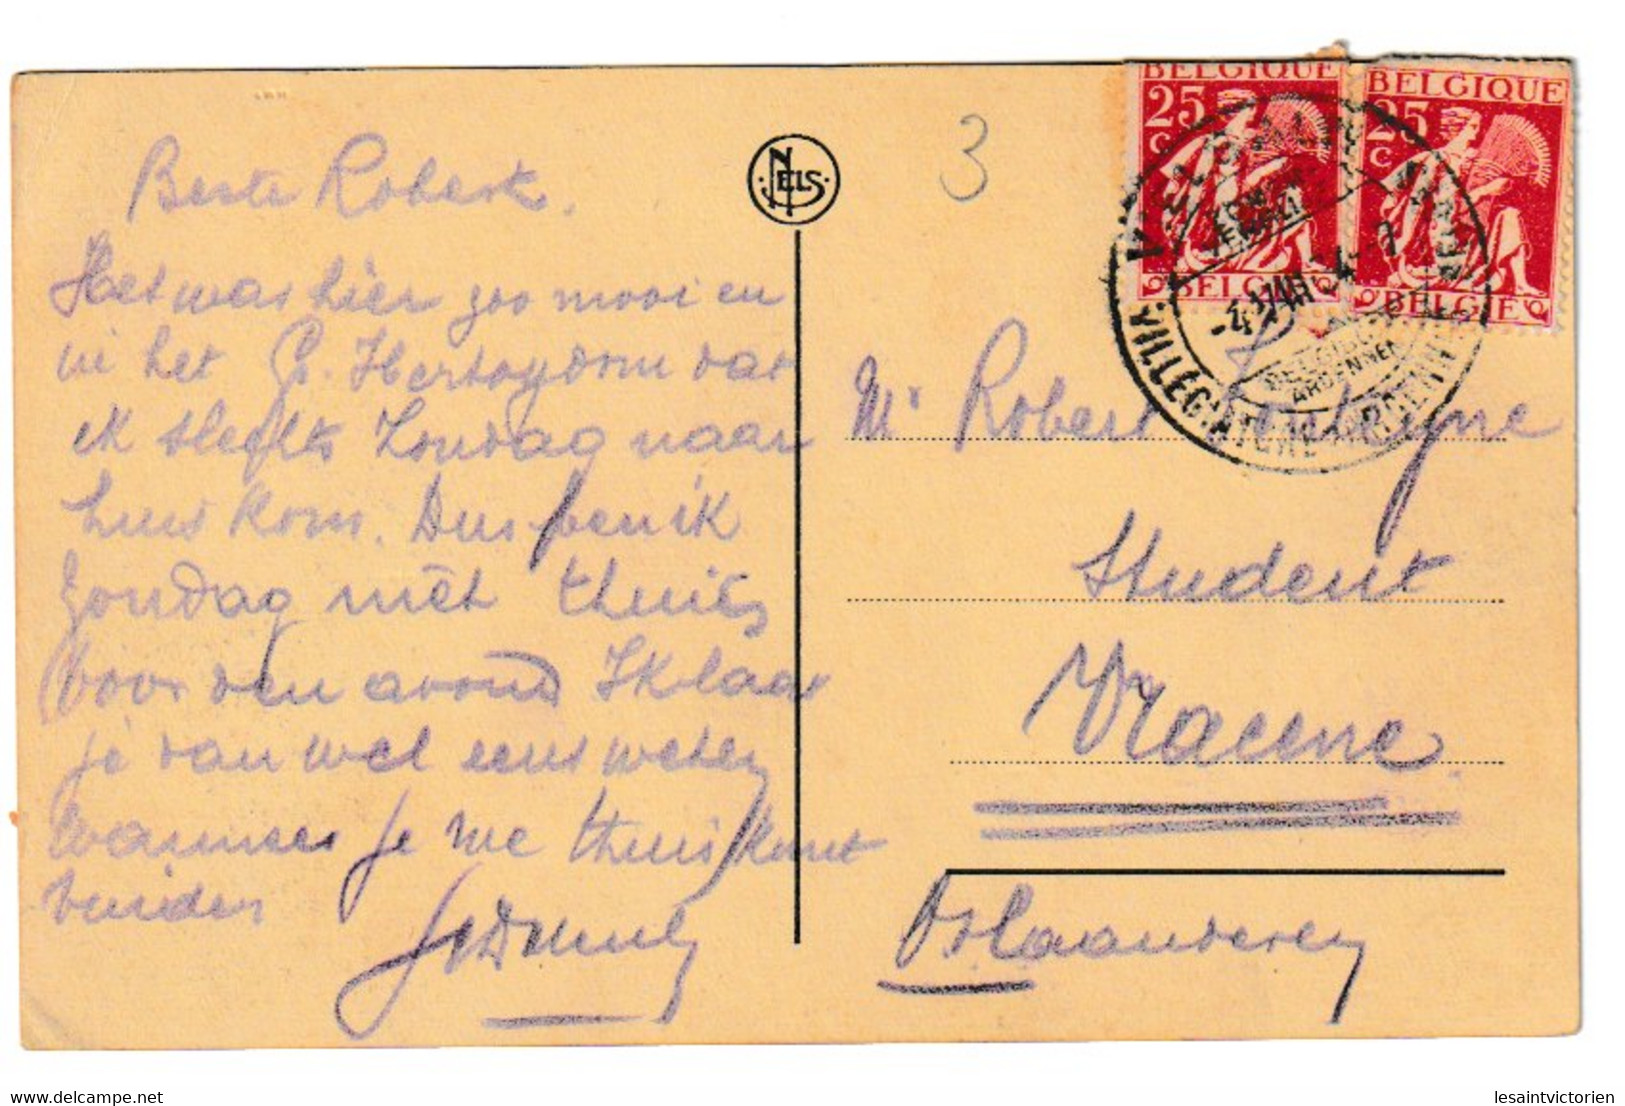 Beste Robert.
Het was hier zoo mooi en
in het G. Hertogdom dat
ik slechts Zondag naar
huis kom. Dus ben ik
Zondag niet thuis
voor den avond Ik laat
je dan wel eens weten
wanneer je me thuis kunt
vinden
NELS
3
BELGIQUE
25
C
BELGIE
BELGIQUE
25
C
BELGIE
VIELSALM
VILLEGIATURE
ARDENNEN
Mr Robert
Student
Vracene
O. Vlaanderen
delcampe.net
lesaintvictorien